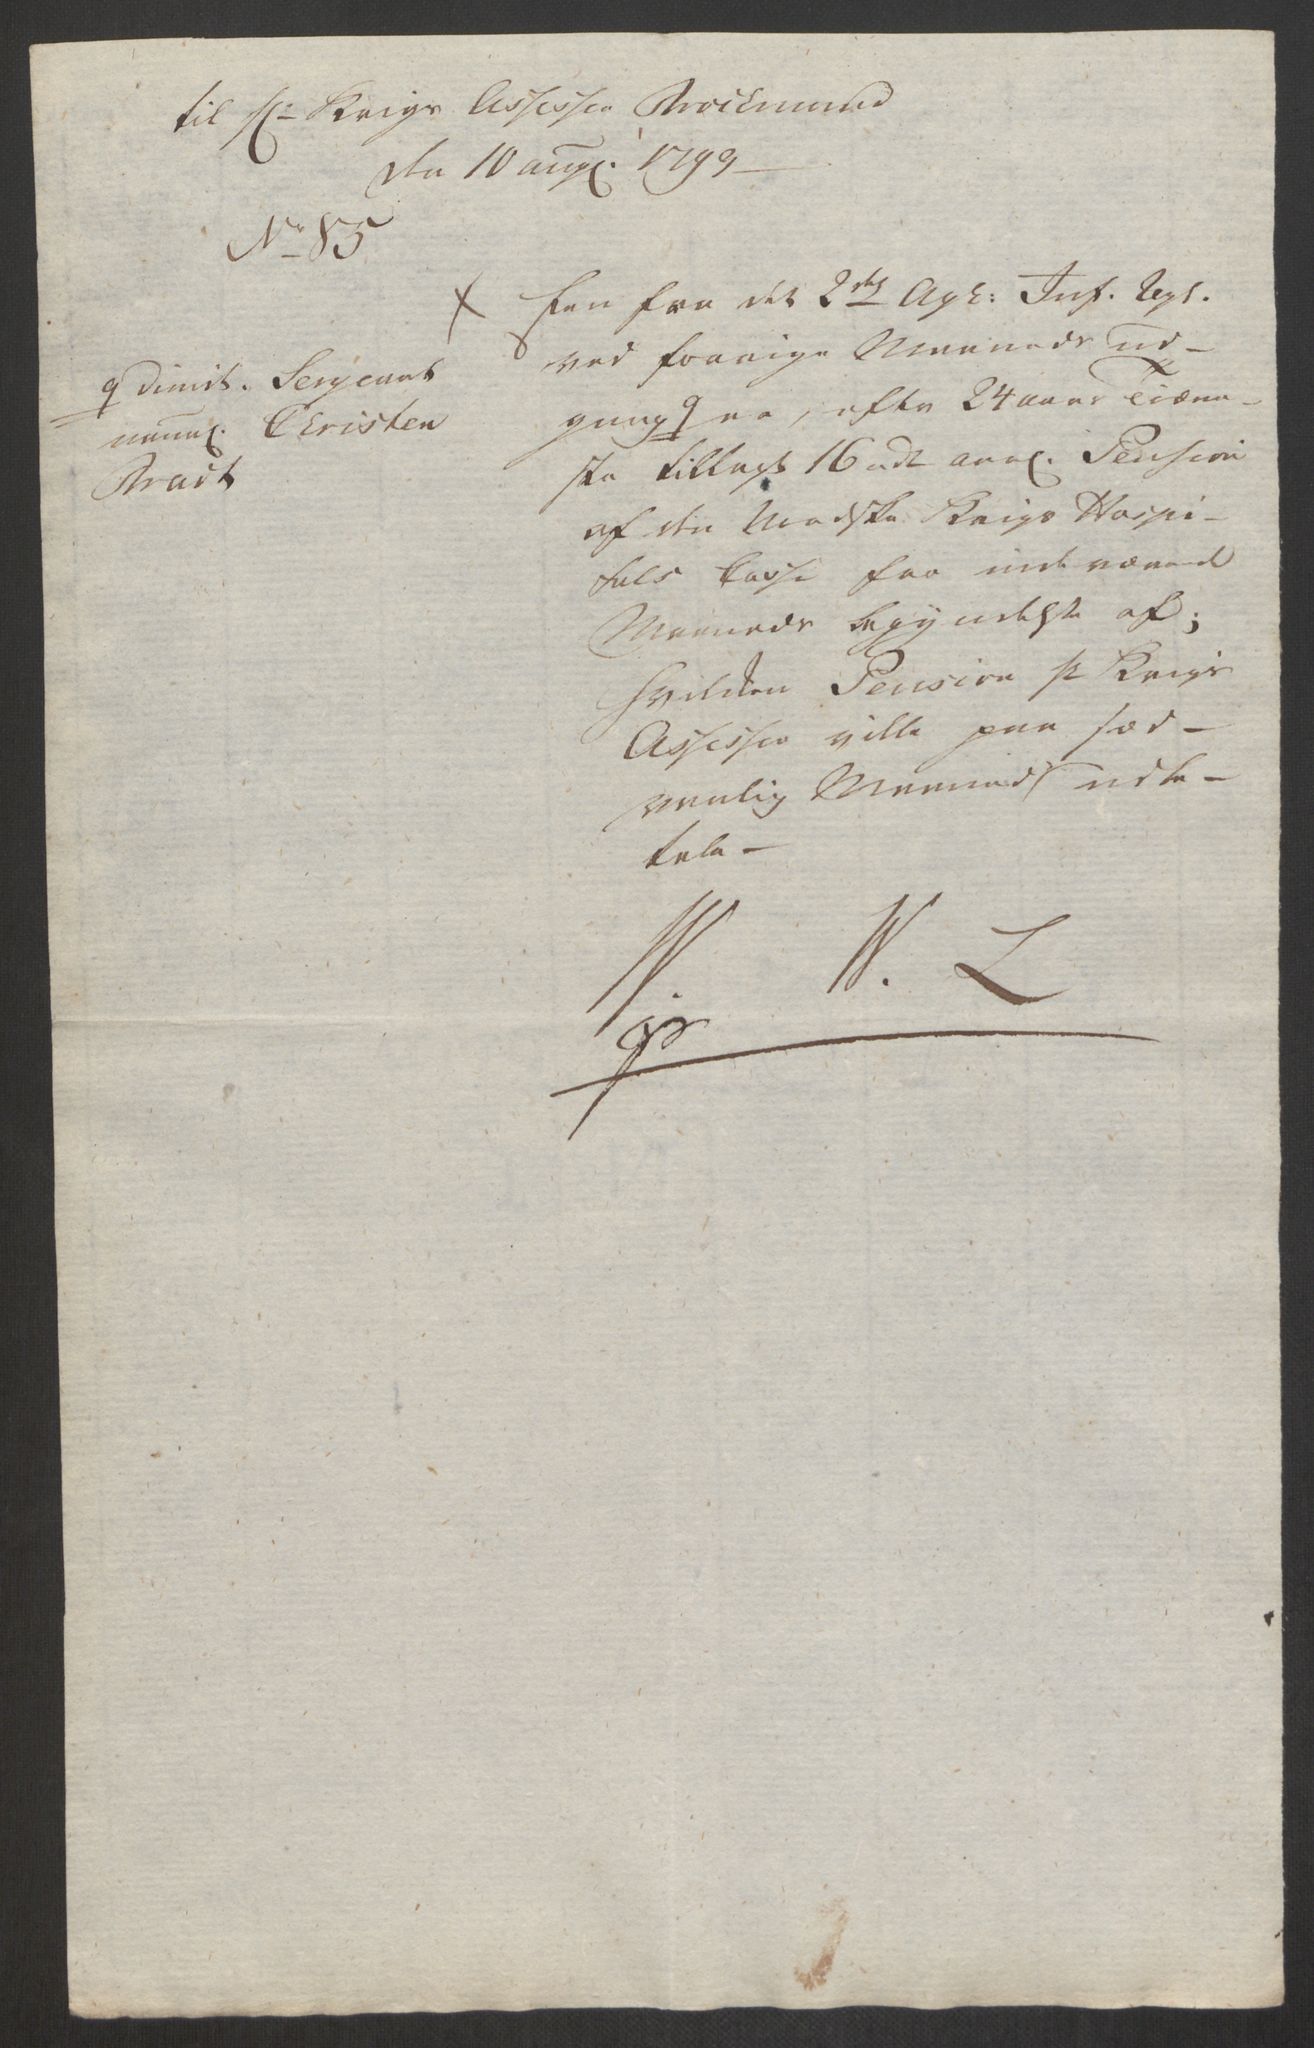 til Hr Krigs Assessor Brochmand
den 10 aug. 1799
No 85
× Een fra det 2det Agh: Inf. Regt.
ved forrige Maaneds ud-
gang ♀ er, efter 24 aars Tiæne-
ste tillagt 16 rdr aarl. Pension
af den Norske Krigs Hospi-
tals Casse fra indeværende
Maaneds begyndelse af;
hvilken Pension Hr Krigs
Assessor ville paa sæd-
vanlig Maade udbe-
tale -
♀ dimit. Sergeant
navnl. Christen
Bradt
W. W. L